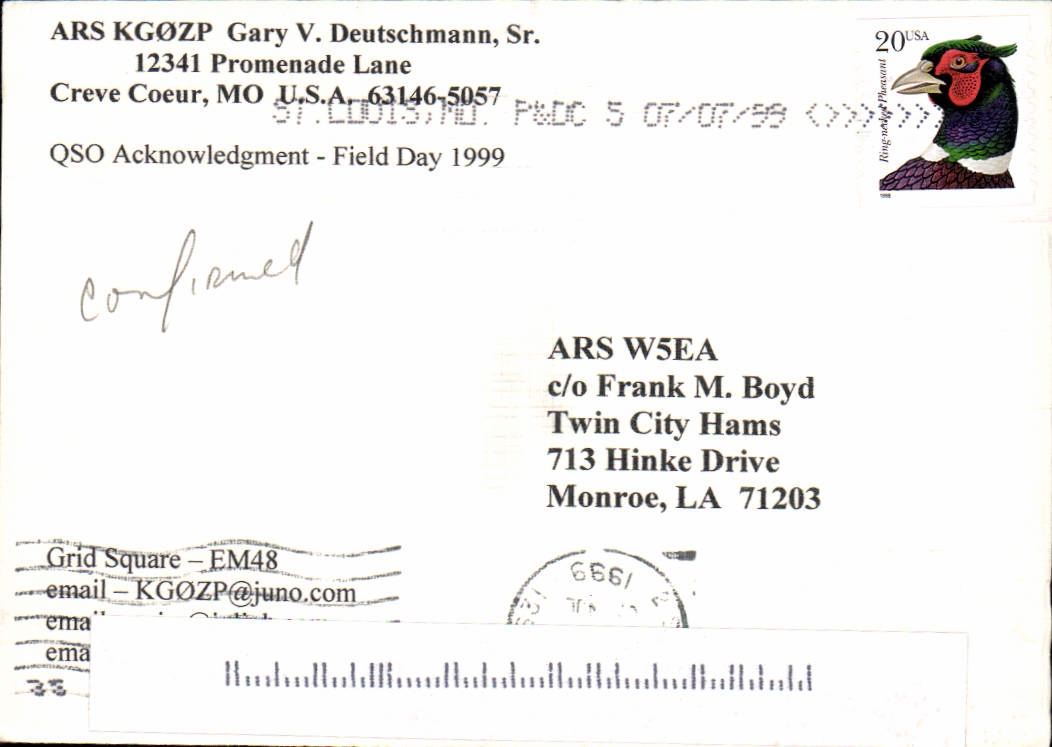 ARS KGØZP Gary V. Deutschmann, Sr.
12341 Promenade Lane
Creve Coeur, MO U.S.A. 63146-5057
ST.LOUIS,MO. P&DC 5 07/07/99
QSO Acknowledgment - Field Day 1999
20USA
Ring-necked Pheasant
1998
confirmed
ARS W5EA
c/o Frank M. Boyd
Twin City Hams
713 Hinke Drive
Monroe, LA 71203
Grid Square – EM48
email – KGØZP@juno.com
1999